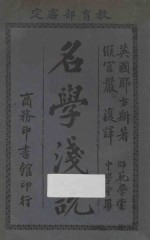 教育部審定
英國耶方斯著
侯官嚴復譯
師範學堂
名學淺說
商務印書館印行